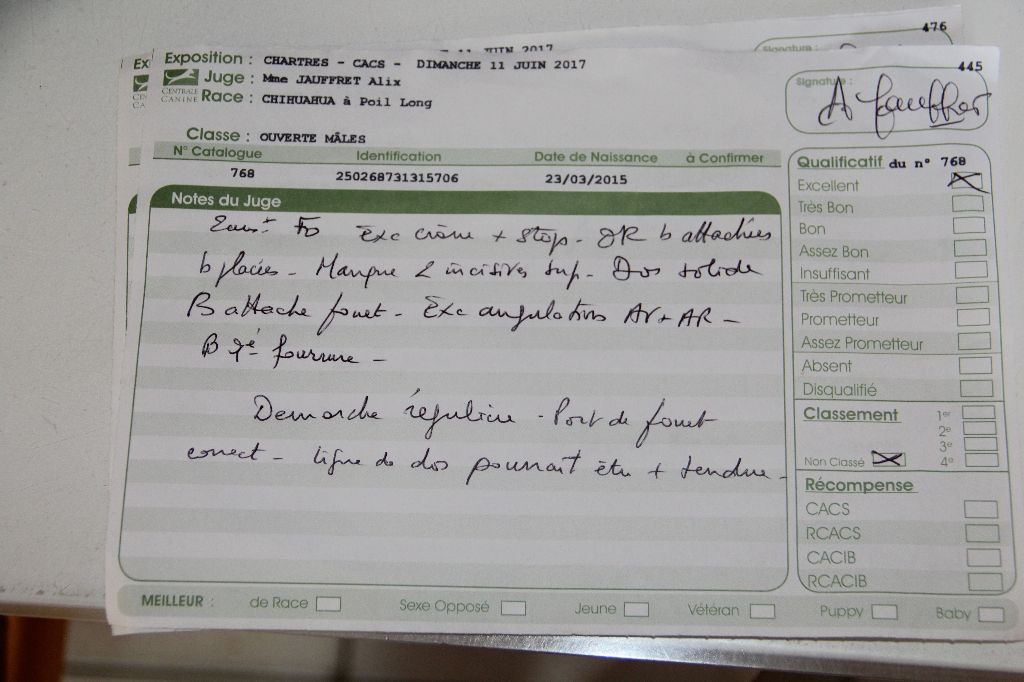 476
11 JUIN 2017
Signature :
Ex
445
Exposition : CHARTRES - CACS - DIMANCHE 11 JUIN 2017
Juge : Mme JAUFFRET Alix
CENTRALE CANINE
Race : CHIHUAHUA à Poil Long
Signature :
A Jauffret
Classe : OUVERTE MÂLES
N° Catalogue Identification Date de Naissance à Confirmer
768 250268731315706 23/03/2015
Notes du Juge
Exc crâne + stop - OR b attachées
b placées - Manque 2 incisives sup. - Dos solide
B attache fouet - Exc angulations AV + AR -
B té fourrure -
Démarche régulière - Port de fouet
correct - ligne de dos pourrait être + tendue -
Qualificatif du n° 768
Excellent
Très Bon
Bon
Assez Bon
Insuffisant
Très Prometteur
Prometteur
Assez Prometteur
Absent
Disqualifié
Classement 1er
2e
3e
Non Classé 4e
Récompense
CACS
RCACS
CACIB
RCACIB
MEILLEUR : de Race Sexe Opposé Jeune Vétéran Puppy Baby